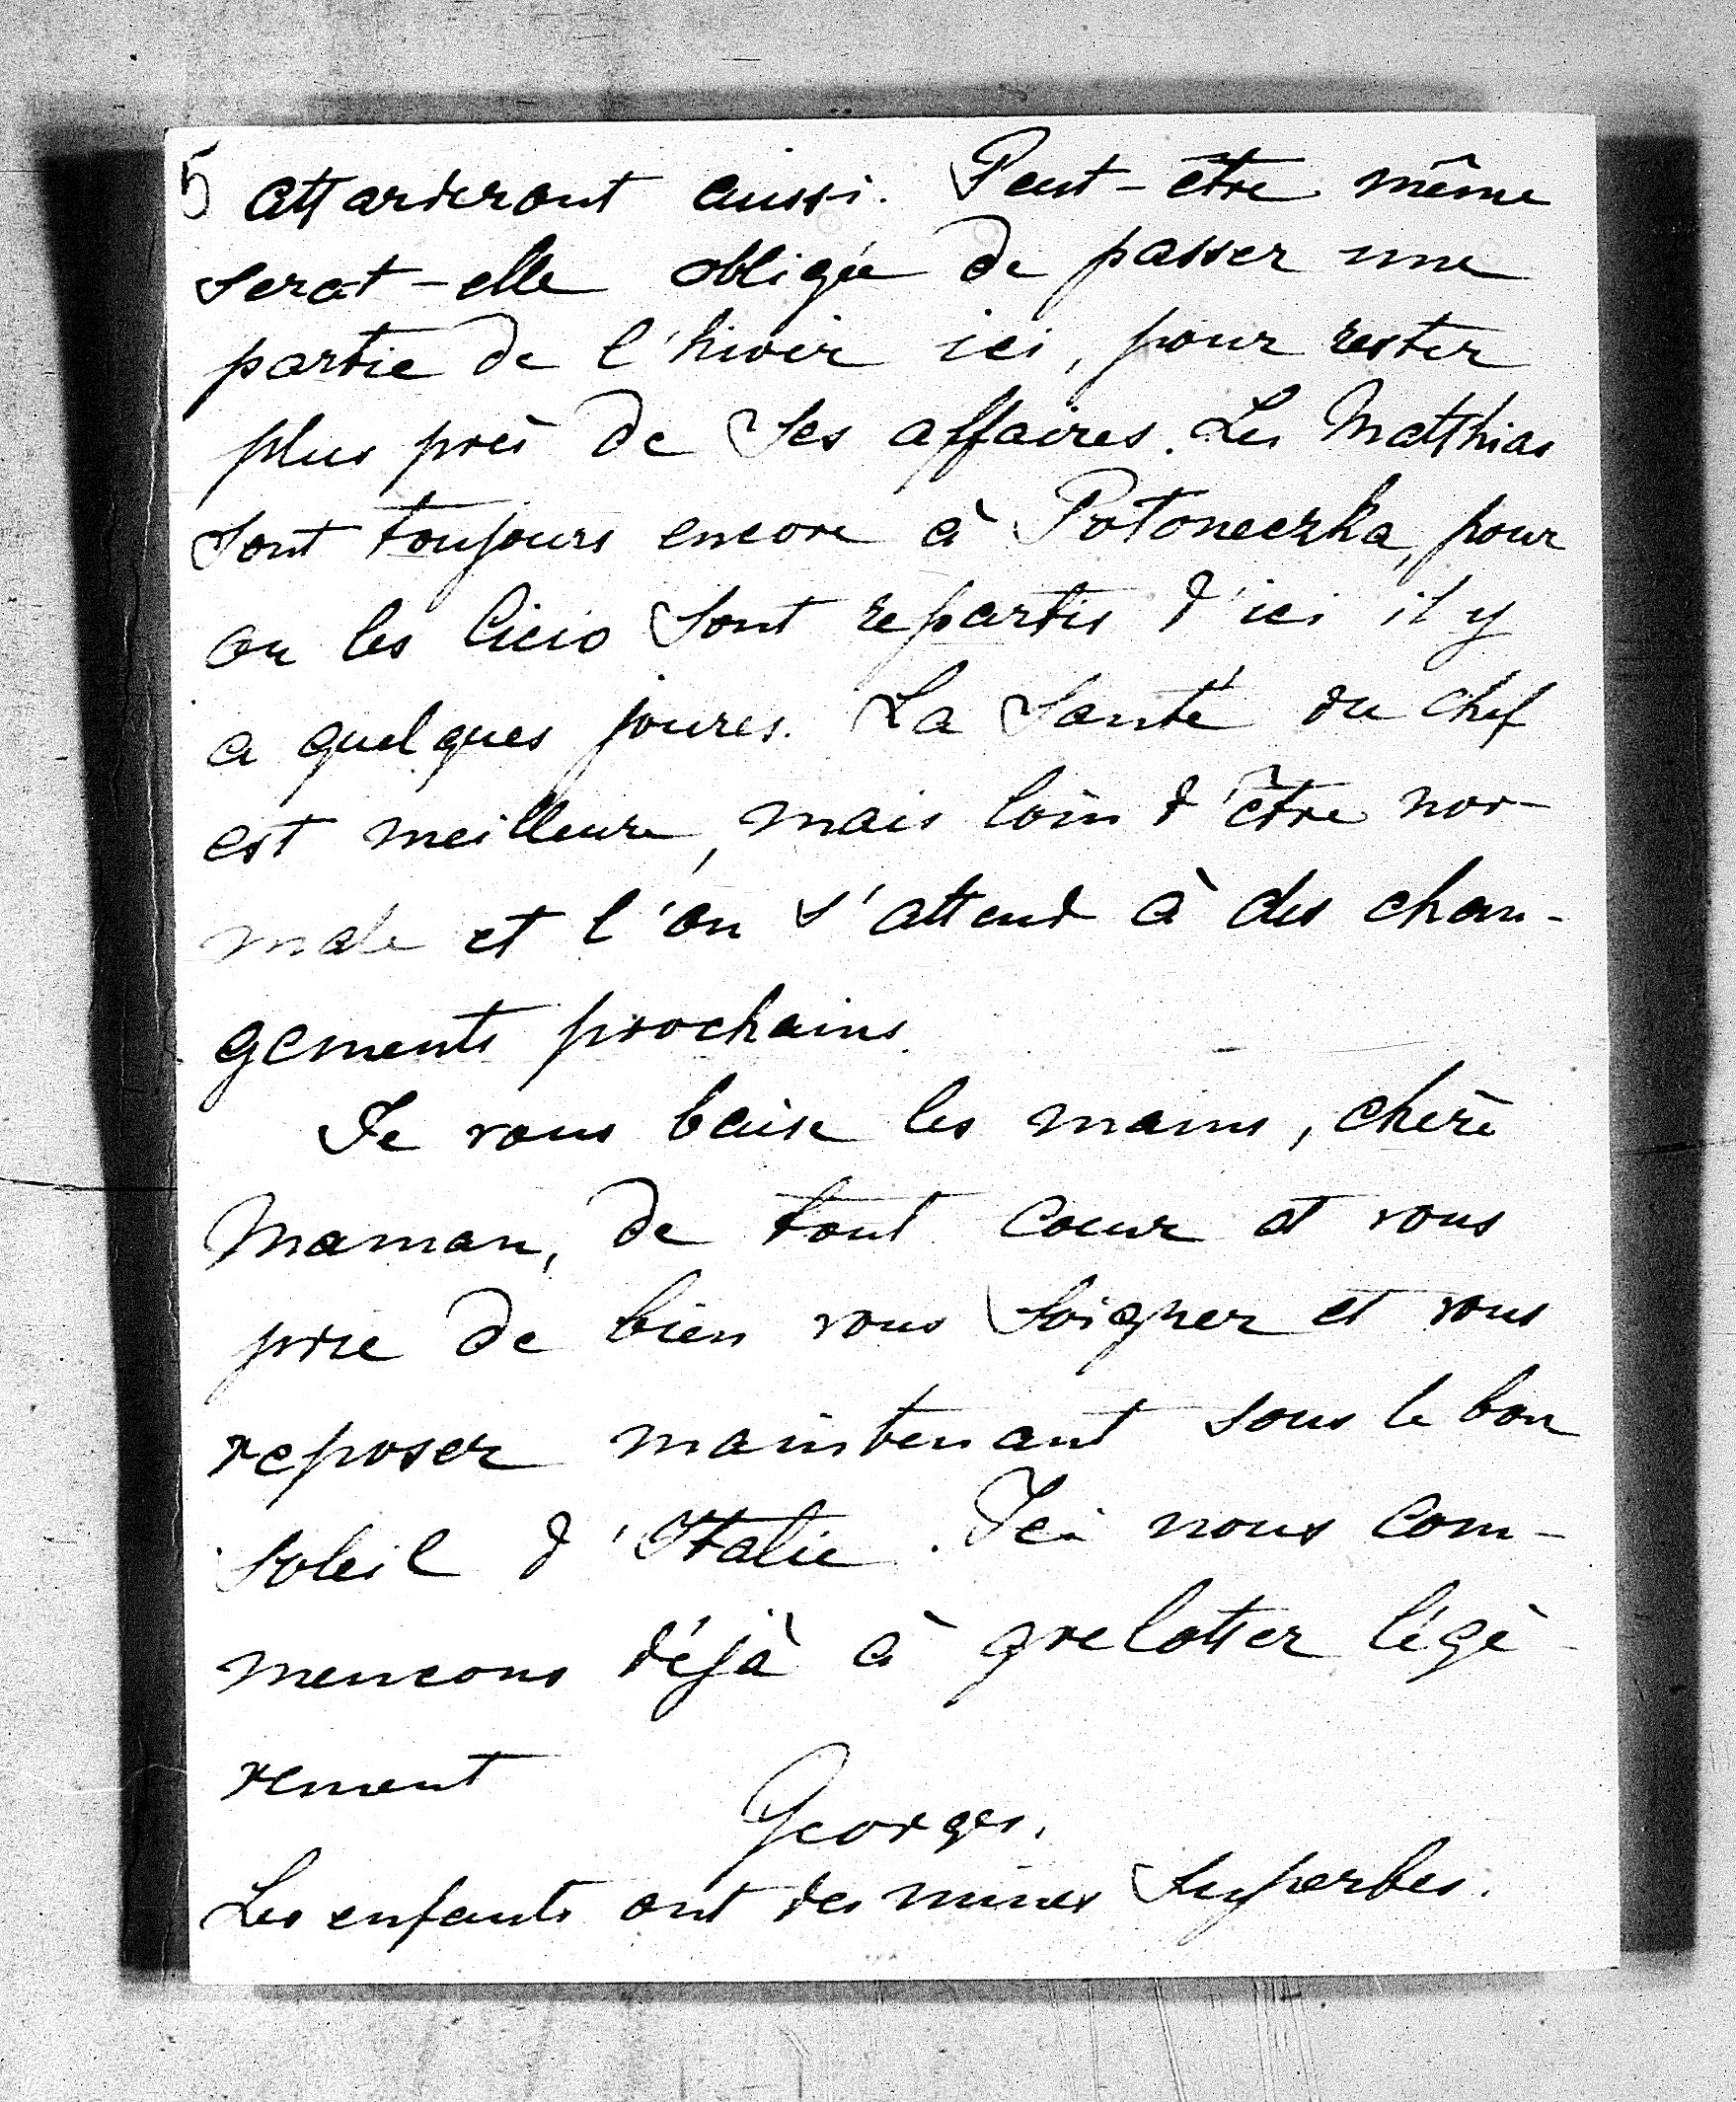 5 attarderont aussi. Peut-être même
serat-elle obligée de passer une
partie de l'hiver ici, pour rester
plus près de ses affaires. Les Matthias
sont toujours encore à Potoneczka, pour
ou les Cicio sont repartis d'ici il y
a quelques joures. La santé du chef
est meilleure, mais loin d'être nor-
male et l'on s'attend à des chan-
gements prochains.
Je vous baise les mains, chère
Maman, de tout coeur et vous
prie de bien vous soigner et vous
reposer maintenant sous le bon
soleil d'Italie. Ici nous com-
mencons déjà à grelotter légè-
rement
Georges.
Les enfants ont des mines superbes.